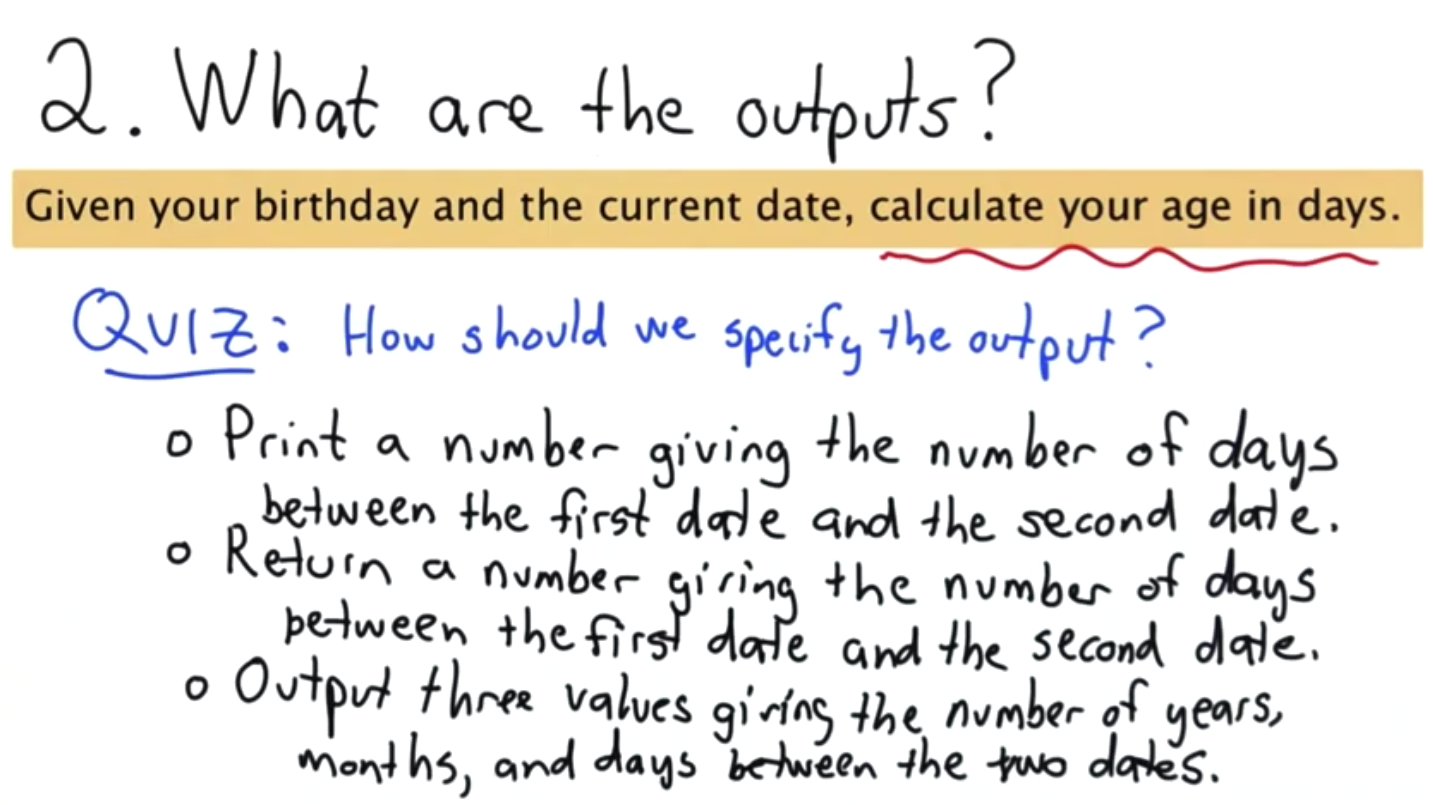 2. What are the outputs?
Given your birthday and the current date, calculate your age in days.
QUIZ: How should we specify the output?
o Print a number giving the number of days
between the first date and the second date.
o Return a number giving the number of days
between the first date and the second date.
o Output three values giving the number of years,
months, and days between the two dates.